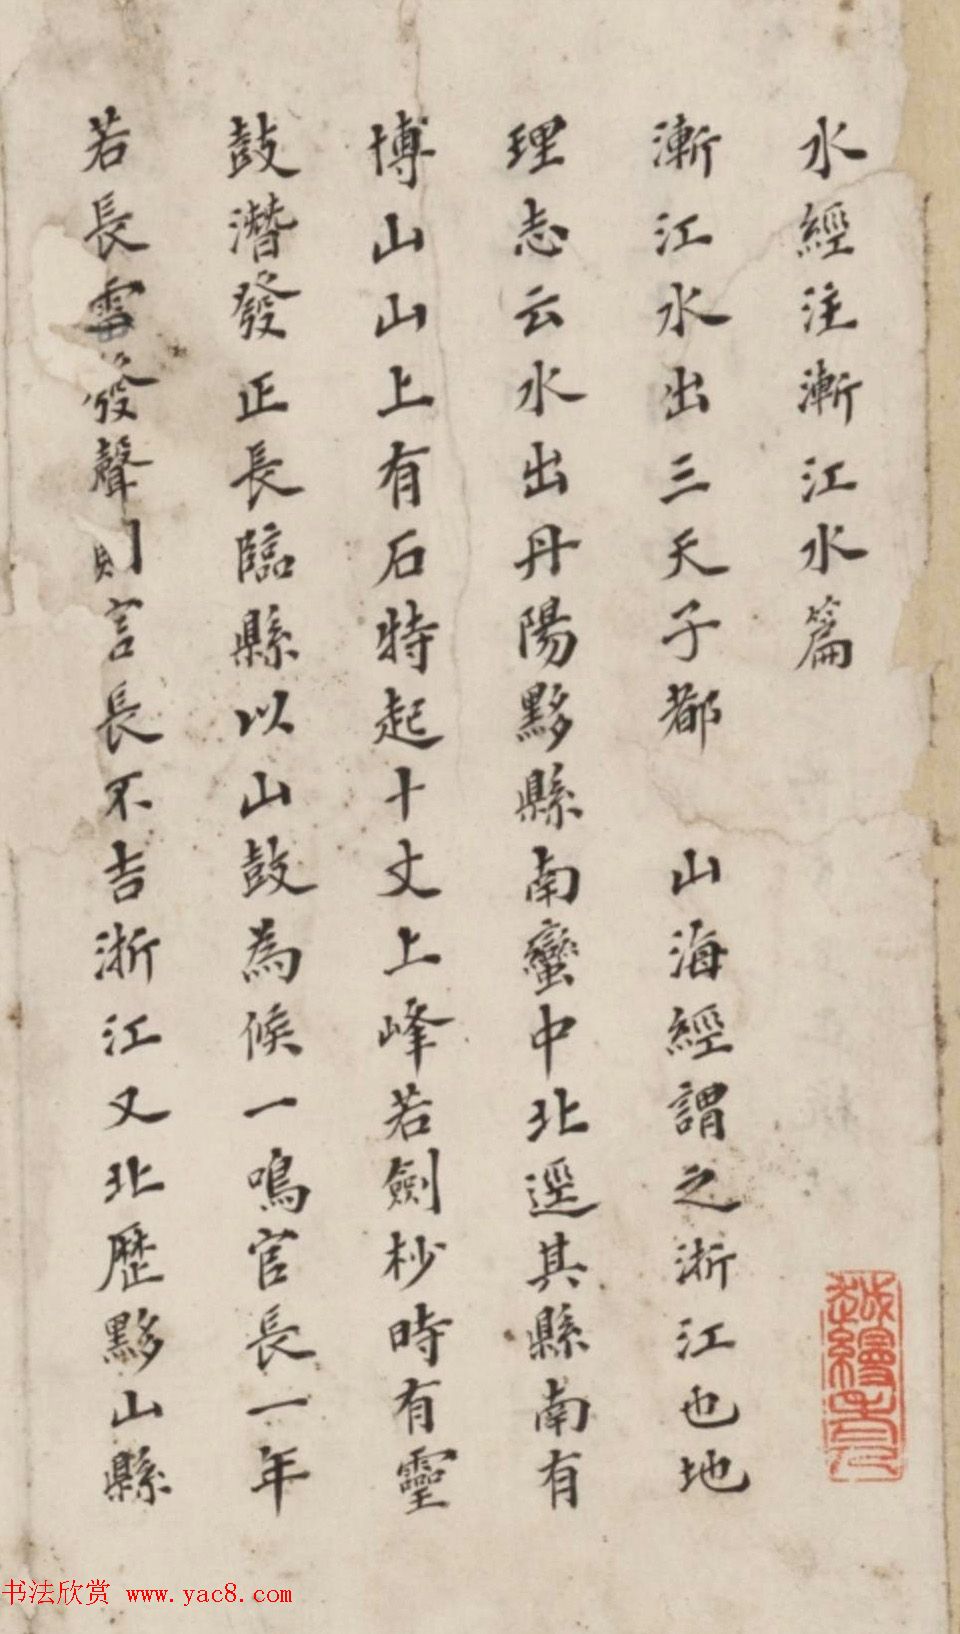 水經注漸江水篇
漸江水出三天子都 山海經謂之浙江也地
理志云水出丹陽黟縣南蠻中北逕其縣南有
博山山上有石特起十丈上峰若劍杪時有靈
鼓潛發正長臨縣以山鼓為候一鳴官長一年
若長雷發聲則言長不吉浙江又北歷黟山縣
书法欣赏 www.yac8.com